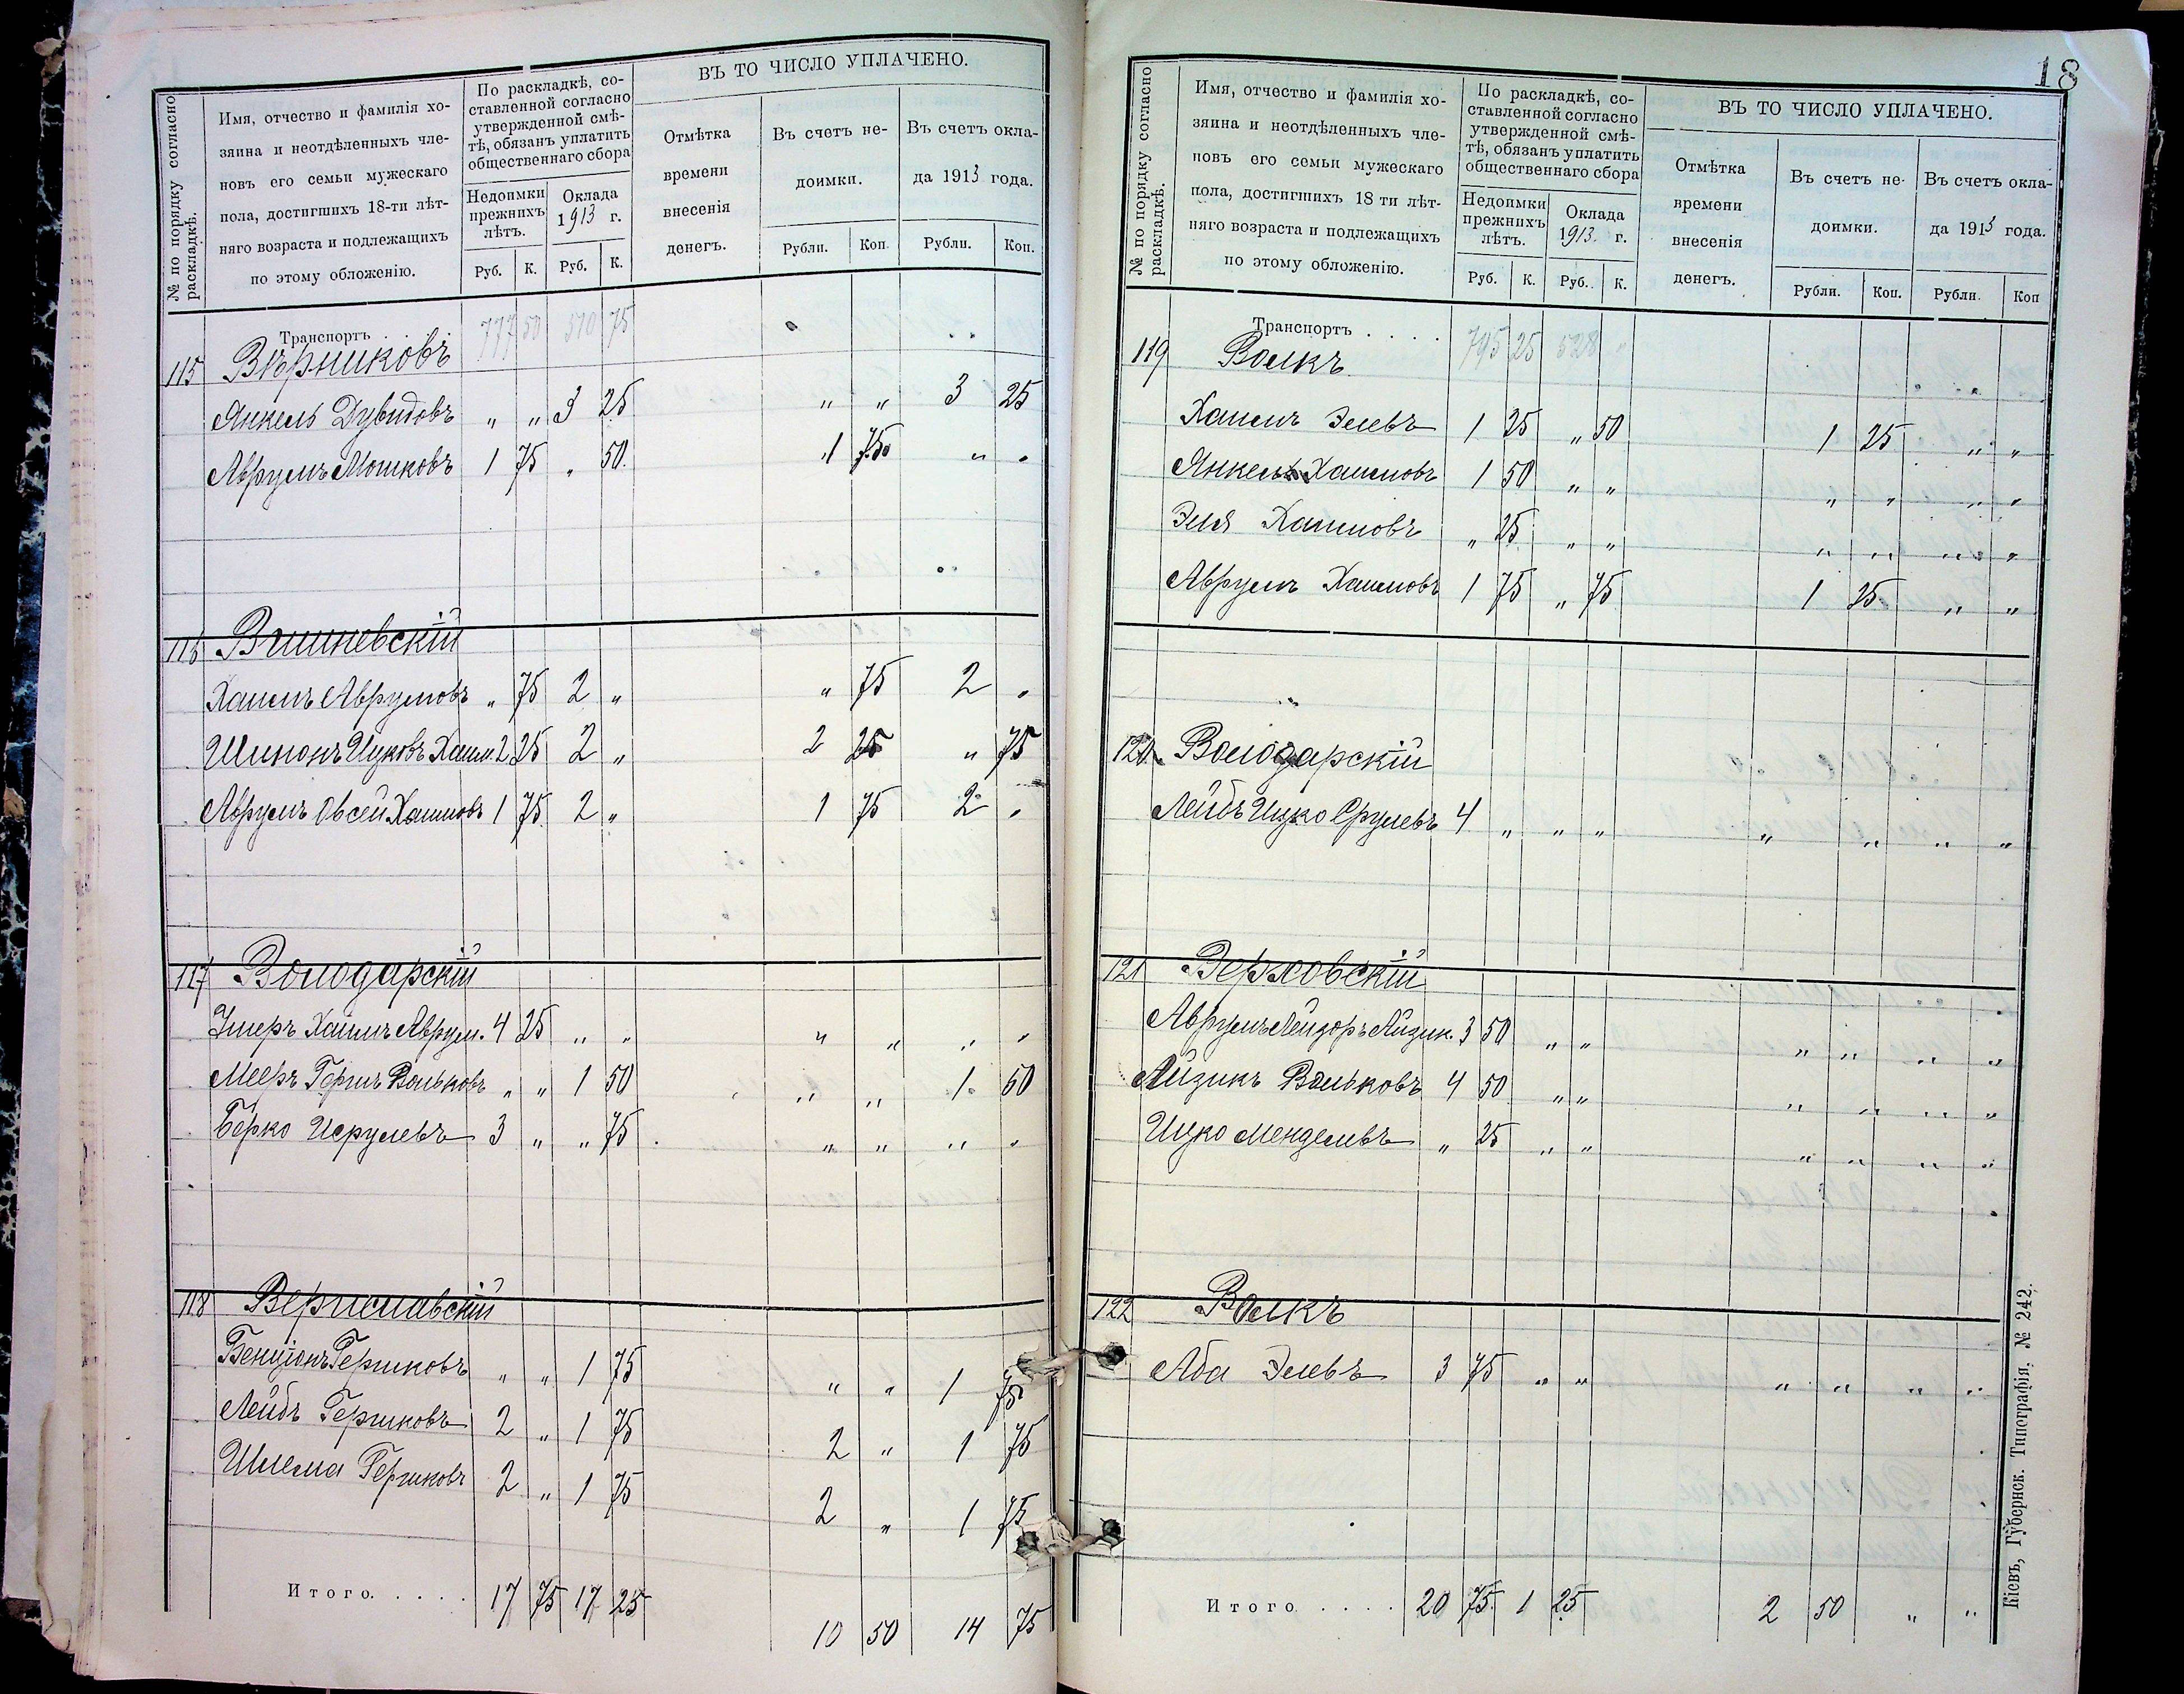 № по порядку согласно раскладкѣ.
Имя, отчество и фамилія хо-
зяина и неотдѣленныхъ чле-
новъ его семьи мужескаго
пола, достигшихъ 18-ти лѣт-
няго возраста и подлежащихъ
по этому обложенію.
По раскладкѣ, со-
ставленной согласно
утвержденной смѣ-
тѣ, обязанъ уплатить
общественнаго сбора
Недоимки
прежнихъ
лѣтъ.
Оклада
1913 г.
Руб. К. Руб. К.
ВЪ ТО ЧИСЛО УПЛАЧЕНО.
Отмѣтка
времени
внесенія
денегъ.
Въ счетъ не-
доимки.
Въ счетъ окла-
да 1913 года.
Рубли. Коп. Рубли. Коп.
Транспортъ . . . 777 50 510 75
115 Вѣрниковъ
Янкель Дувидовъ „ „ 3 25 „ „ 3 25
Аврумъ Мошковъ 1 75 „ 50 1 „ „
116 Вишневскій
Хаимъ Аврумовъ „ 75 2 „ „ 75 2 „
Шимонъ Ицковъ Хаим. 2 25 2 „ 2 25 „ 75
Аврумъ Овсей Хаимовъ 1 75 2 „ 1 75 2 „
117 Володарскій
Умеръ Хаимъ Аврум. 4 25 „ „ „ „ „ „
Мееръ Гершъ Вольковъ „ „ 1 50 „ „ 1 50
Берко Исрулевъ 3 „ „ 75 „ „ „ „
118 Вериславскій
Бенціонъ Гершковъ „ „ 1 75 „ „ 1 75
Лейбъ Гершковъ 2 „ 1 75 2 „ 1 75
Шлема Гершковъ 2 „ 1 75 2 „ 1 75
Итого . . . . . 17 75 17 25 10 50 14 75
18
№ по порядку согласно раскладкѣ.
Имя, отчество и фамилія хо-
зяина и неотдѣленныхъ чле-
новъ его семьи мужескаго
пола, достигшихъ 18 ти лѣт-
няго возраста и подлежащихъ
по этому обложенію.
По раскладкѣ, со-
ставленной согласно
утвержденной смѣ-
тѣ, обязанъ уплатить
общественнаго сбора
Недоимки
прежнихъ
лѣтъ.
Оклада
1913. г.
Руб. К. Руб. К.
ВЪ ТО ЧИСЛО УПЛАЧЕНО.
Отмѣтка
времени
внесенія
денегъ.
Въ счетъ не-
доимки.
Въ счетъ окла-
да 1913 года.
Рубли. Коп. Рубли. Коп
Транспортъ . . . . 795 25 528 „
119 Волкъ
Хаимъ Элевъ 1 25 „ 50 1 25 „ „
Янкель Хаимовъ 1 50 „ „ „ „ „ „
Эля Хаимовъ „ 25 „ „ „ „ „ „
Аврумъ Хаимовъ 1 75 „ 75 1 25 „ „
120 Володарскій
Лейбъ Ицко Срулевъ 4 „ „ „ „ „ „ „
121 Верховскій
Аврумъ Лейзоръ Айзик. 3 50 „ „ „ „ „ „
Айзикъ Вольковъ 4 50 „ „ „ „ „ „
Ицко Менделевъ „ 25 „ „ „ „ „ „
122 Волкъ
Аба Элевъ 3 75 „ „ „ „ „ „
Итого . . . . 20 75 1 25 2 50 „ „
Кіевъ, Губернск. Типографія, № 242.